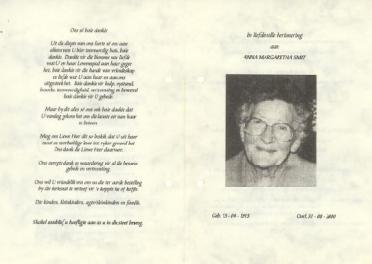 Ons sê baie dankie
Uit die diepte van ons harte sê ons aan
almal van U hier teenwoordig baie, baie
dankie. Dankie vir die blomme van liefde
wat U in haar Lewenspad aan haar gegee
het, baie dankie vir die hande van vriendskap
en liefde wat U aan haar en aan ons
uitgesteek het. Baie dankie vir hulp, bystand,
besoeke, teenwoordigheid, vertroosting en bowenal
baie dankie vir U gebede.
Maar by dit alles sê ons ook baie dankie dat
U vandag gekom het om die laaste eer aan haar
te betoon.
Mag ons Liewe Heer dit so beskik dat U uit haar
mooi en voorbeeldige lewe tot ryker geword het
Ons dank die Liewe Heer daarvoor.
Ons opregte dank en waardering vir al die bewese
gebede en vertroosting.
Ons wil U vriendelik vra om na die ter aarde bestelling
by die kerksaal te vertoef vir 'n koppie tee of koffie.
Die kinders, kleinkinders, agterkleinkinders en familie.
Skakel asseblief u hoofligte aan as u in die stoet beweeg.
In liefdevolle herinnering
aan
ANNA MARGARETHA SMIT
Geb. 13 - 04 - 1915
Oorl. 31 - 08 - 2000